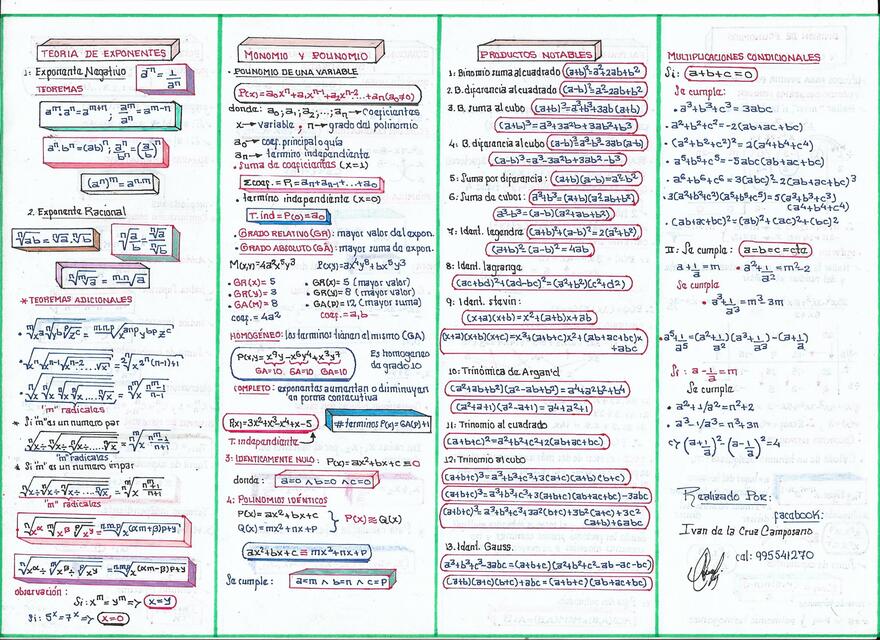 TEORIA DE EXPONENTES
1: Exponente Negativo a⁻ⁿ = 1/aⁿ
TEOREMAS
aᵐ.aⁿ = aᵐ⁺ⁿ ; aᵐ/aⁿ = aᵐ⁻ⁿ
aⁿ.bⁿ = (ab)ⁿ ; aⁿ/bⁿ = (a/b)ⁿ
(aⁿ)ᵐ = aⁿ·ᵐ
2. Exponente Racional
ⁿ√ab = ⁿ√a.ⁿ√b
ⁿ√(a/b) = ⁿ√a/ⁿ√b
ⁿ√ᵐ√a = ᵐ·ⁿ√a
* TEOREMAS ADICIONALES
"m" radicales
• Si "m" es un numero par
"m" radicales
Si "m" es un numero impar
"m" radicales
observación:
Si: xᵐ = yᵐ => x=y
Si: 5ˣ = 7ˣ => x=0
MONOMIO Y POLINOMIO
• POLINOMIO DE UNA VARIABLE
P(x) = a₀xⁿ + a₁xⁿ⁻¹ + a₂xⁿ⁻² ... + aₙ (a₀≠0)
donde: a₀; a₁; a₂; ...; aₙ → coeficientes
x → variable, n → grado del polinomio
a₀ → coef. principal o guía
aₙ → termino independiente
• Suma de coeficientes (x=1)
Σcoef. = P₁ = aₙ + aₙ₋₁ + ... + a₀
• termino independiente (x=0)
T. ind = P(0) = a₀
• GRADO RELATIVO (GR): mayor valor del expon.
• GRADO ABSOLUTO (GA): mayor suma de expon.
M(x,y) = 4a²x⁵y³ P(x,y) = ax⁴y⁸ + bx⁵y³
• GR(x) = 5 • GR(x) = 5 (mayor valor)
GR(y) = 3 GR(y) = 8 (mayor valor)
• GA(M) = 8 • GA(P) = 12 (mayor suma)
coef. = 4a² coef. = a, b
HOMOGÉNEO: los terminos tienen el mismo (GA)
P(x;y) = x⁹y - x⁶y⁴ + x³y⁷ Es homogeneo
GA=10 GA=10 GA=10 de grado 10
COMPLETO: exponentes aumentan o disminuyen
en forma consecutiva
P(x) = 3x²+x³-x⁴+x-5
# terminos P(x) = GA(P)+1
T. independiente
3: IDENTICAMENTE NULO: P(x) = ax²+bx+c ≡ 0
donde: a=0 ∧ b=0 ∧ c=0
4: POLINOMIO IDÉNTICOS
P(x) = ax²+bx+c
P(x) ≡ Q(x)
Q(x) = mx²+nx+p
ax²+bx+c ≡ mx²+nx+p
Se cumple: a=m ∧ b=n ∧ c=p
PRODUCTOS NOTABLES
1: Binomio suma al cuadrado (a+b)² = a²+2ab+b²
2. B. diferencia al cuadrado (a-b)² = a²-2ab+b²
3. B. suma al cubo (a+b)³ = a³+b³+3ab(a+b)
(a+b)³ = a³+3a²b+3ab²+b³
4: B. diferencia al cubo (a-b)³ = a³-b³-3ab(a-b)
(a-b)³ = a³-3a²b+3ab²-b³
5: Suma por diferencia: (a+b)(a-b) = a²-b²
6: Suma de cubos: a³+b³ = (a+b)(a²-ab+b²)
a³-b³ = (a-b)(a²+ab+b²)
7: Ident. legendre (a+b)²+(a-b)² = 2(a²+b²)
(a+b)²-(a-b)² = 4ab
8: Ident. lagrange
(ac+bd)²+(ad-bc)² = (a²+b²)(c²+d²)
9: Ident. stevin:
(x+a)(x+b) = x²+(a+b)x+ab
(x+a)(x+b)(x+c) = x³+(a+b+c)x²+(ab+ac+bc)x
+abc
10: Trinómica de Argan'd
(a²+ab+b²)(a²-ab+b²) = a⁴+a²b²+b⁴
(a²+a+1)(a²-a+1) = a⁴+a²+1
11: Trinomio al cuadrado
(a+b+c)² = a²+b²+c²+2(ab+ac+bc)
12: Trinomio al cubo
(a+b+c)³ = a³+b³+c³+3(a+c)(a+b)(b+c)
(a+b+c)³ = a³+b³+c³+3(a+b+c)(ab+ac+bc)-3abc
(a+b+c)³ = a³+b³+c³+3a²(b+c)+3b²(a+c)+3c²
(a+b)+6abc
13. Ident. Gauss.
a³+b³+c³-3abc = (a+b+c)(a²+b²+c²-ab-ac-bc)
(a+b)(a+c)(b+c)+abc = (a+b+c)(ab+ac+bc)
MULTIPLICACIONES CONDICIONALES
Si: a+b+c=0
Se cumple:
• a³+b³+c³ = 3abc
• a²+b²+c² = -2(ab+ac+bc)
• (a²+b²+c²)² = 2(a⁴+b⁴+c⁴)
• a⁵+b⁵+c⁵ = -5abc(ab+ac+bc)
• a⁶+b⁶+c⁶ = 3(abc)²-2(ab+ac+bc)³
• 3(a²+b²+c²)(a⁵+b⁵+c⁵) = 5(a³+b³+c³)
(a⁴+b⁴+c⁴)
• (ab+ac+bc)² = (ab)²+(ac)²+(bc)²
II: Se cumple: a=b=c=cta
a+1/a = m • a²+1/a² = m²-2
Se cumple
• a³+1/a³ = m³-3m
• a⁵+1/a⁵ = (a²+1/a²)(a³+1/a³)-(a+1/a)
Si: a-1/a = m
Se cumple
• a²+1/a² = n²+2
• a³-1/a³ = n³+3n
c) (a+1/a)²-(a-1/a)² = 4
Realizado Por:
facebook:
Ivan de la Cruz Camposano
cal: 995541270